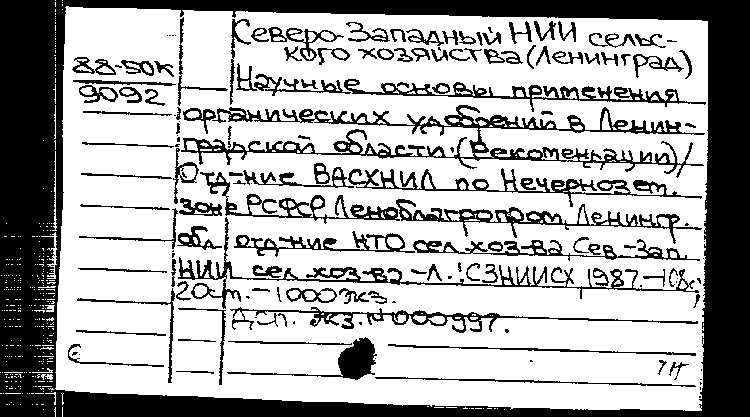 Северо-Западный НИИ сельс-
кого хозяйства (Ленинград)
88-50К
9092
Научные основы применения
органических удобрений в Ленин-
градской области: (Рекомендации)/
Отд-ние ВАСХНИЛ по Нечернозем.
зоне РСФСР, Леноблагропром, Ленингр.
обл. отд-ние НТО сел. хоз-ва, Сев.-Зап.
НИИ сел. хоз-ва.-Л.: СЗНИИСХ, 1987.-108с;
20см.-1000экз.
Дсп. Экз.N000997.